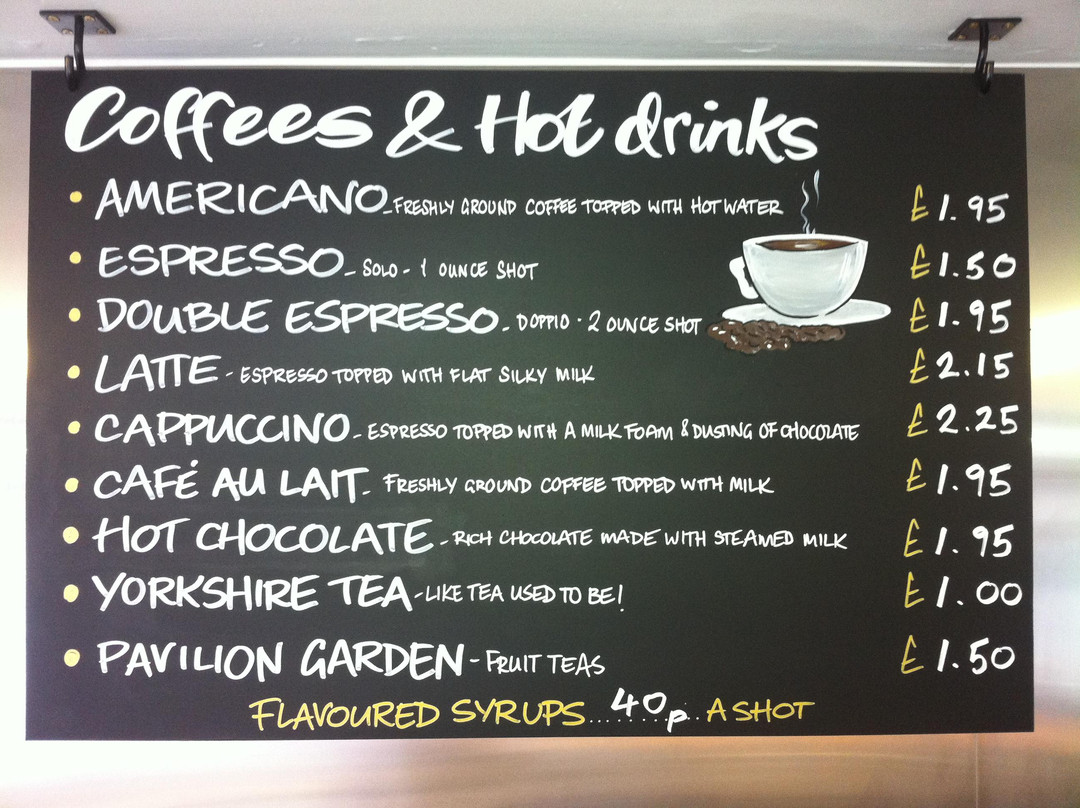 Coffees & Hot drinks
• AMERICANO - FRESHLY GROUND COFFEE TOPPED WITH HOT WATER £1.95
• ESPRESSO - SOLO - 1 OUNCE SHOT £1.50
• DOUBLE ESPRESSO - DOPPIO - 2 OUNCE SHOT £1.95
• LATTE - ESPRESSO TOPPED WITH FLAT SILKY MILK £2.15
• CAPPUCCINO - ESPRESSO TOPPED WITH A MILK FOAM & DUSTING OF CHOCOLATE £2.25
• CAFÉ AU LAIT - FRESHLY GROUND COFFEE TOPPED WITH MILK £1.95
• HOT CHOCOLATE - RICH CHOCOLATE MADE WITH STEAMED MILK £1.95
• YORKSHIRE TEA - LIKE TEA USED TO BE! £1.00
• PAVILION GARDEN - FRUIT TEAS £1.50
FLAVOURED SYRUPS...40p...A SHOT